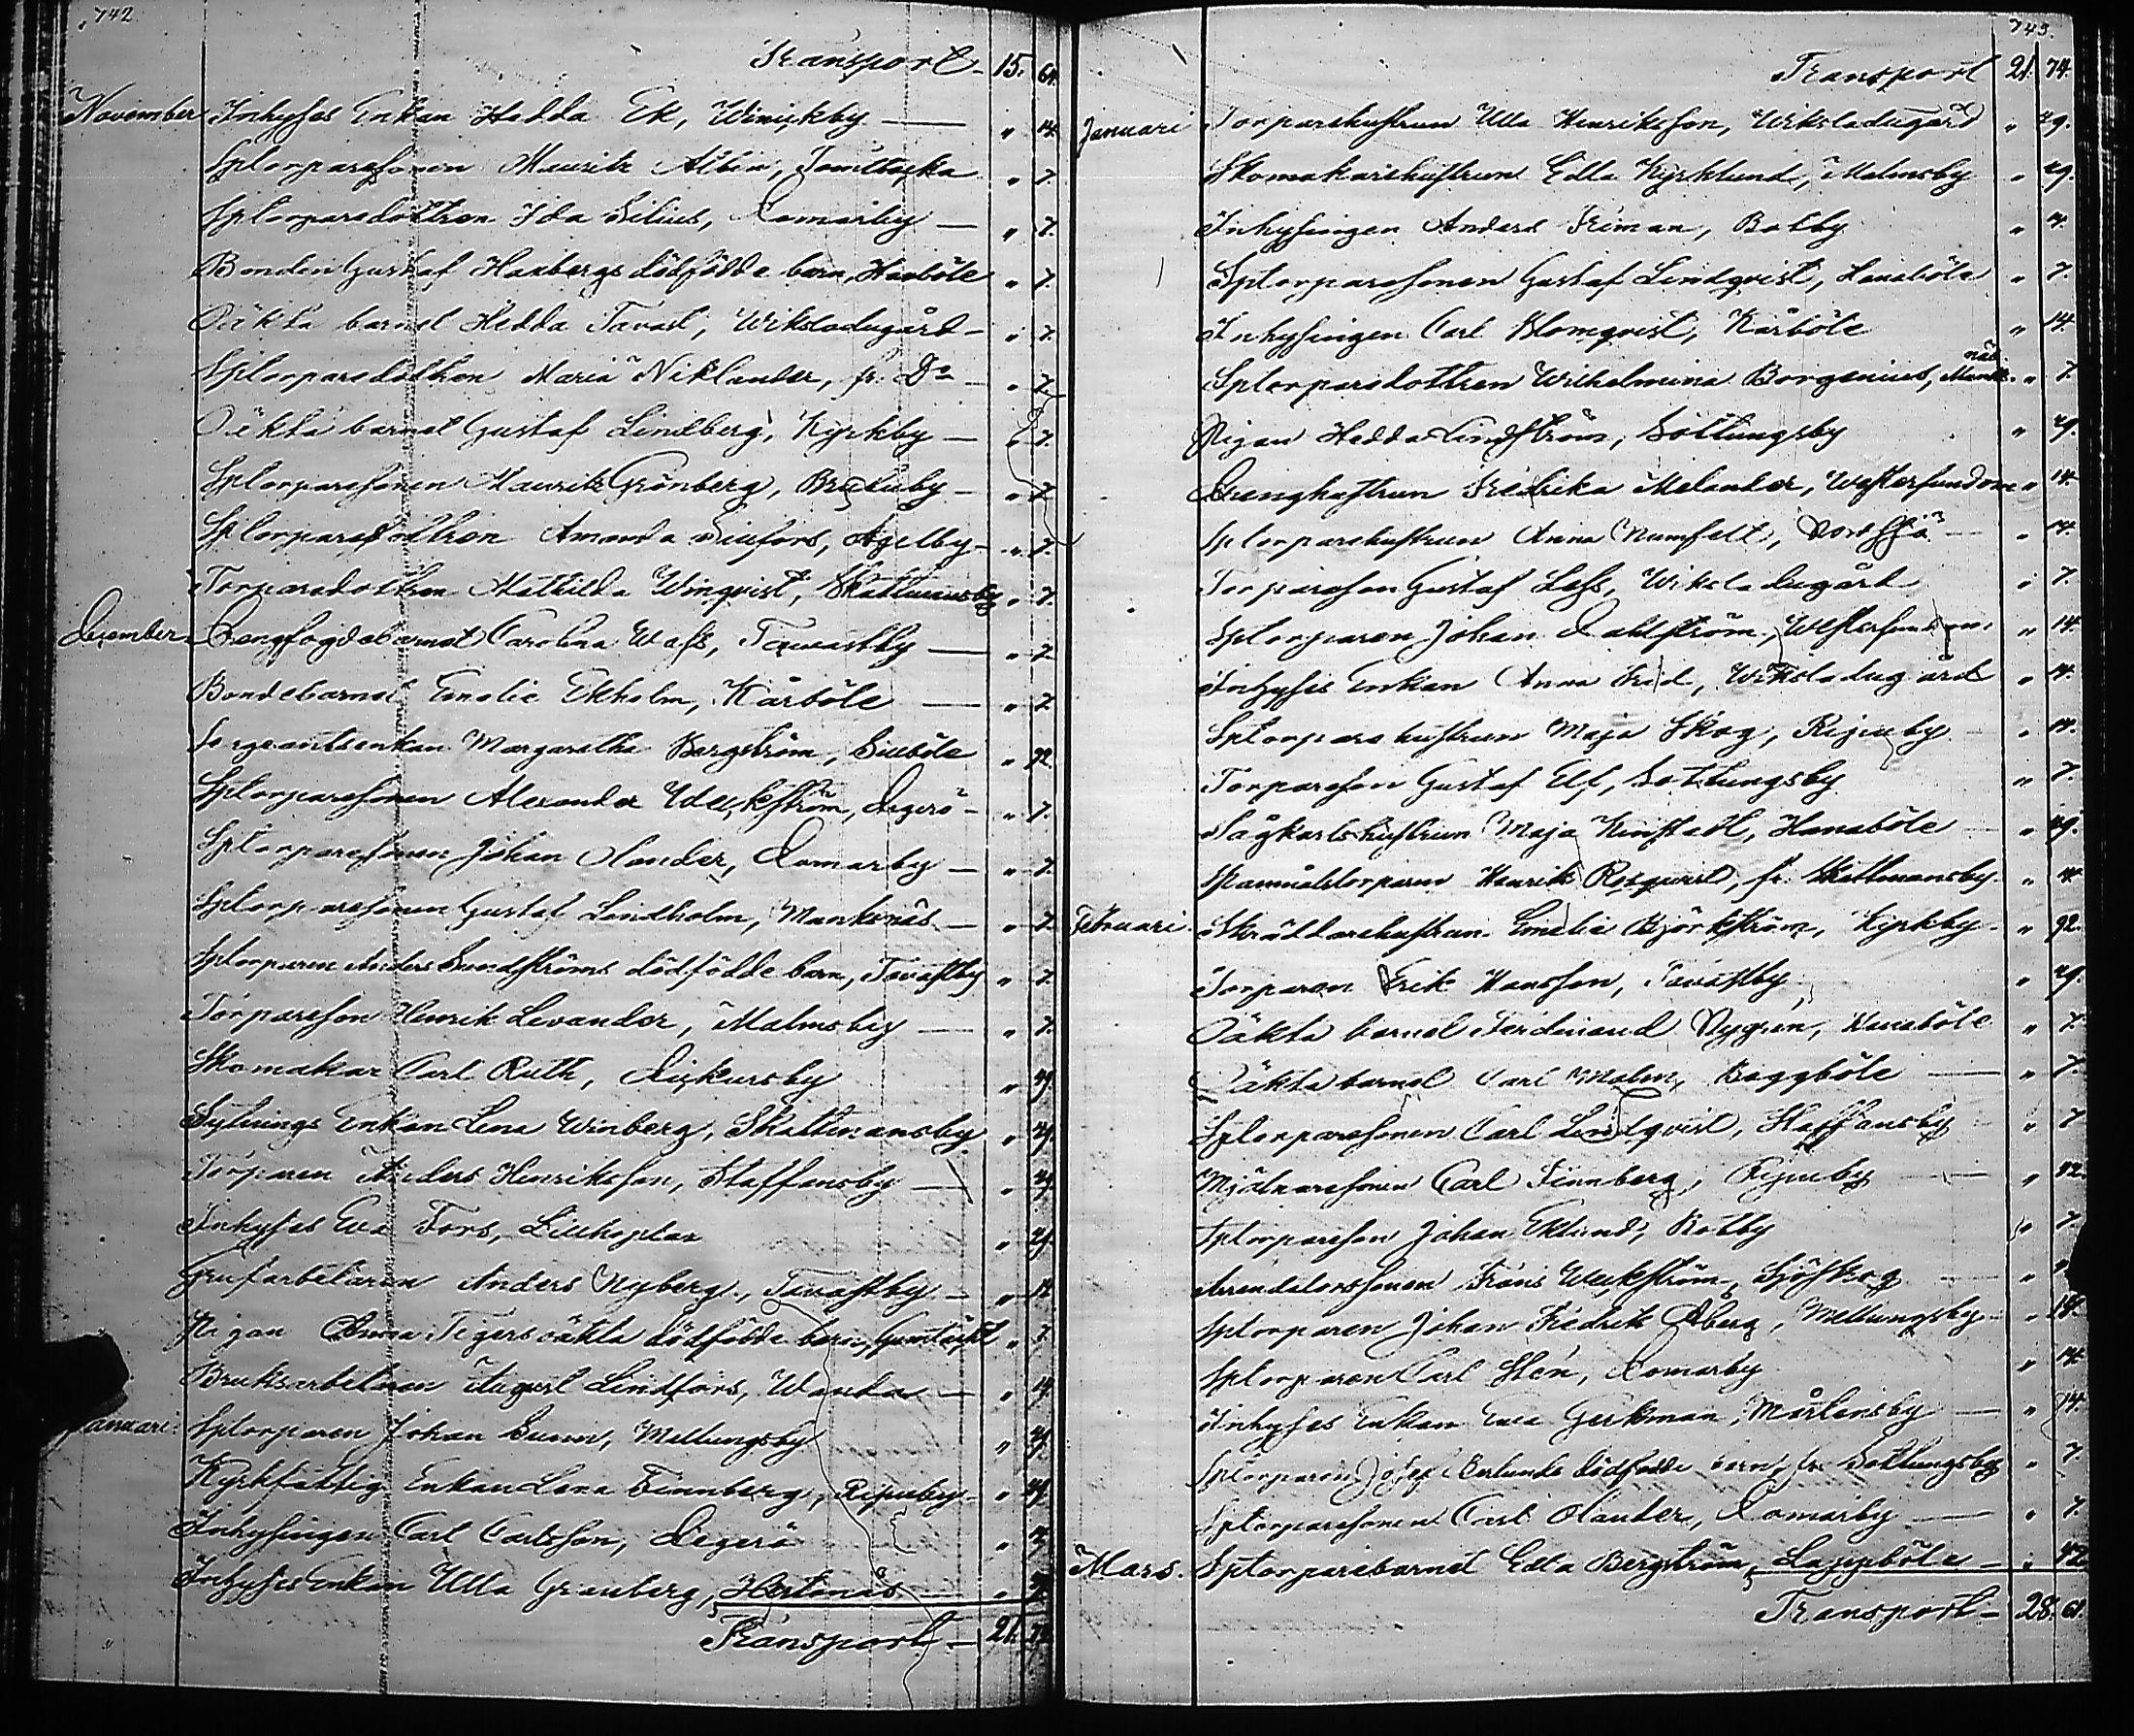 742
Transport - 15. 64.
November Inhyses Enkan Hedda Ek, Winickby — " 14.
Sptorparesonen Mauritz Albin, Tomtbacka " 7.
Sptorparedottren Ida Silius, Domarby — " 7.
Bonden Gustaf Haxbergs dödfödde barn, Hanböle " 7.
Oäkta barnet Hedda Tavast, Wiksladugård - " 7.
Sptorparedottren Maria Niklander, fr. Do - " 7.
Oäkta barnet Gustaf Lindberg, Kyrkby — " 7.
Sptorparesonen Maurits Grönberg, — " 7.
Sptorparedottren Amanda - " 7.
Torparedottren Mathilda Winqvist, Skattmansby " 7.
December Drengfogdebarnet Carolina Wass, Tavastby — " 7.
Bondebarnet Emelie Ekholm, Kårböle — " 7.
Sergeantsenkan Margaretha Bergström, " 92.
Sptorparesonen Alexander Weckström, Degerö - " 7.
Sptorparesonen Johan Olander, Domarby — " 7.
Sptorparesonen Gustaf Lindholm, Marknäs — " 7.
Sptorparen Anders Sundströms dödfödde barn, Tavastby " 7.
Torpareson Henrik Levander, Malmsby — " 7.
Skomakar Carl Ruth, Dickursby " 49.
Sytnings Enkan Lena Winberg, Skattmansby " 49.
Torparen Anders Henriksson, Staffansby — " 49.
Inhyses Eva Fors, Lillhoplax " 49.
Grufarbetaren Anders Nyberg, Tavastby — " 14
Pigan Anna Tigers oäkta dödfödde barn, " 7.
Bruksarbetaren August Lindfors, Wanda — " 14.
Januari. Sptorparen Johan Mellungsby " 49.
Kyrkfattig Enkan Lena Finnberg, Ripuby - " 49.
Inhysingen Carl Carlsson, Degerö "
Inhyses Enkan Ulla Granberg, Hertonäs — "
Transport — 21. 74.
743.
Transport 21. 74.
Januari Torparehustrun Ulla Henriksson, Wiksladugård " 49.
Skomakarehustrun Edla Kyrklund, Malmsby " 49.
Inhysingen Anders Friman, Botby " 14.
Sptorparesonen Gustaf Lindqvist, Hanaböle " 7.
Inhysingen Carl Blomqvist, Kårböle " 14.
Sptorparedottren Wilhelmina Borgenius, Marknäs " 7.
Pigan Hedda Lindström, Sottungsby " 49.
Drenghustrun Fredrika Melander, Westersundom " 14.
Sptorparehustrun Anna Numfelt, " 14.
Torpareson Gustaf Less, Wiksladugård " 7.
Sptorparen Johan Dahlström, Westersundom " 14.
Inhyses Enkan Anna Frid, Wiksladugård " 14.
Sptorparehustrun Maja Skog, Ripuby " 14.
Torpareson Gustaf Elf, Sottungsby " 7.
Sågkarlshustrun Maja Hanaböle — " 49.
Spannmålstorparen Henrik Rosqvist, fr. Skattmansby " 14.
Februari. Skräddarehustrun Emelie Björkström, Kyrkby - " 92.
Torparen Erik Hansson, Tavastby, " 49.
Oäkta barnet Ferdinand Nygrén, Hanaböle " 7.
Oäkta barnet Carl Malm, Baggböle — " 7.
Sptorparesonen Carl Lindqvist, Staffansby " 7
Mjölnaresonen Carl Finnberg, Ripuby — " 42.
Sptorpareson Johan Eklund, Botby " 7.
Arrendatorssonen Frans Weckström, Sjöskog — "
Sptorparen Johan Fredrik Åberg, Mellungsby - " 14.
Sptorparen Carl Sten, Domarby " 14.
Inhyses Enkan Eva Gerkman, Mårtensby — " 14.
Sptorparen Josef dödfödde barn, fr. Sottungsby " 7.
Sptorparesonen Carl Olander, Domarby — " 7.
Mars. Sptorparebarnet Edla Bergström, Lappböle — " 42
Transport — 28. 61.